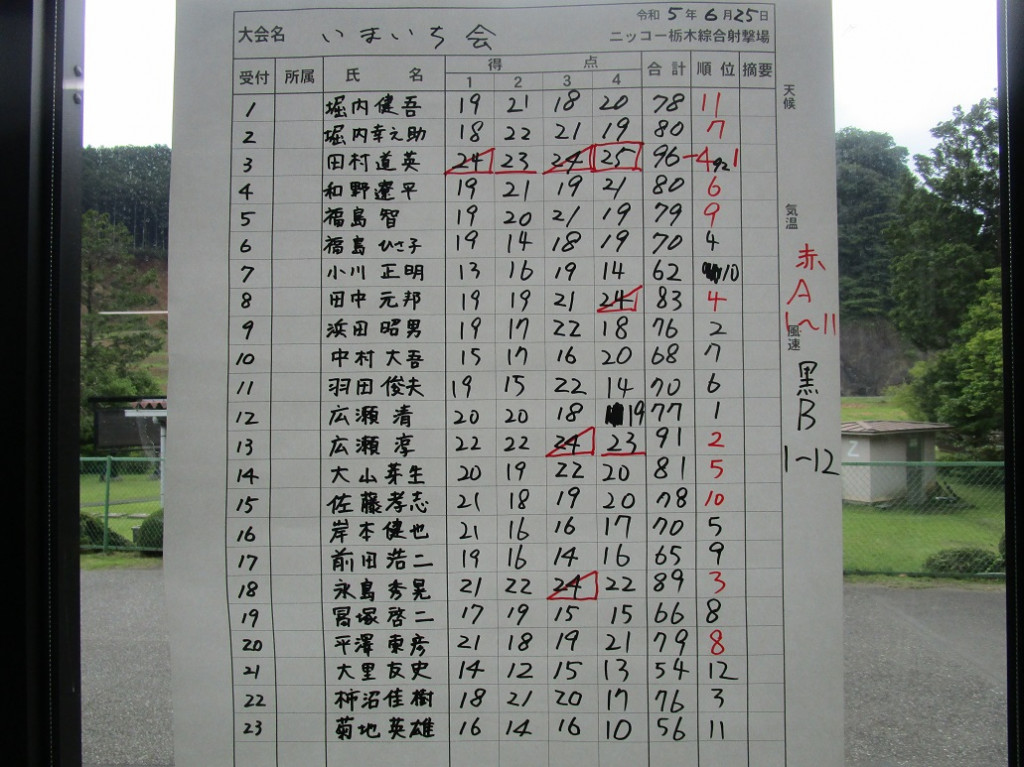 令和 5年 6月25日
大会名 いまいち会 ニッコー栃木綜合射撃場
受付 所属 氏名 得点 合計 順位 摘要
1 2 3 4
1 堀内健吾 19 21 18 20 78 11
2 堀内幸之助 18 22 21 19 80 7
3 田村道英 24 23 24 25 96-4 92 1
4 和野遼平 19 21 19 21 80 6
5 福島智 19 20 21 19 79 9
6 福島ひさ子 19 14 18 19 70 4
7 小川正明 13 16 19 14 62 10
8 田中元邦 19 19 21 24 83 4
9 浜田昭男 19 17 22 18 76 2
10 中村大吾 15 17 16 20 68 7
11 羽田俊夫 19 15 22 14 70 6
12 広瀬清 20 20 18 19 77 1
13 広瀬淳 22 22 24 23 91 2
14 大山芽生 20 19 22 20 81 5
15 佐藤孝志 21 18 19 20 78 10
16 岸本健也 21 16 16 17 70 5
17 前田浩二 19 16 14 16 65 9
18 永島秀晃 21 22 24 22 89 3
19 冨塚啓二 17 19 15 15 66 8
20 平澤東彦 21 18 19 21 79 8
21 大里友史 14 12 15 13 54 12
22 柿沼佳樹 18 21 20 17 76 3
23 菊地英雄 16 14 16 10 56 11
天候
気温
赤
A
1〜11
風速
黒
B
1〜12
2